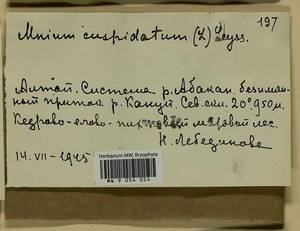 197
Mnium cuspidatum (L) Leyss.
Алтай. Система р. Абакан. безимян-
ный приток р. Кануй. Сев. скл. 20° 950 м.
Кедрово-елово-пихтовый лес.
Н. Лебединова
14.VII-1945
Herbarium MW, Bryophyta
MW 9 054 024